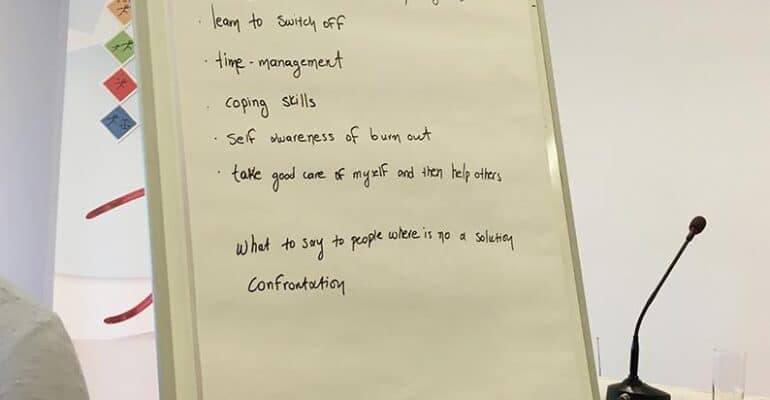 · learn to switch off
· time-management
· coping skills
· self awareness of burn out
· take good care of myself and then help others
What to say to people where is no a solution
confrontation